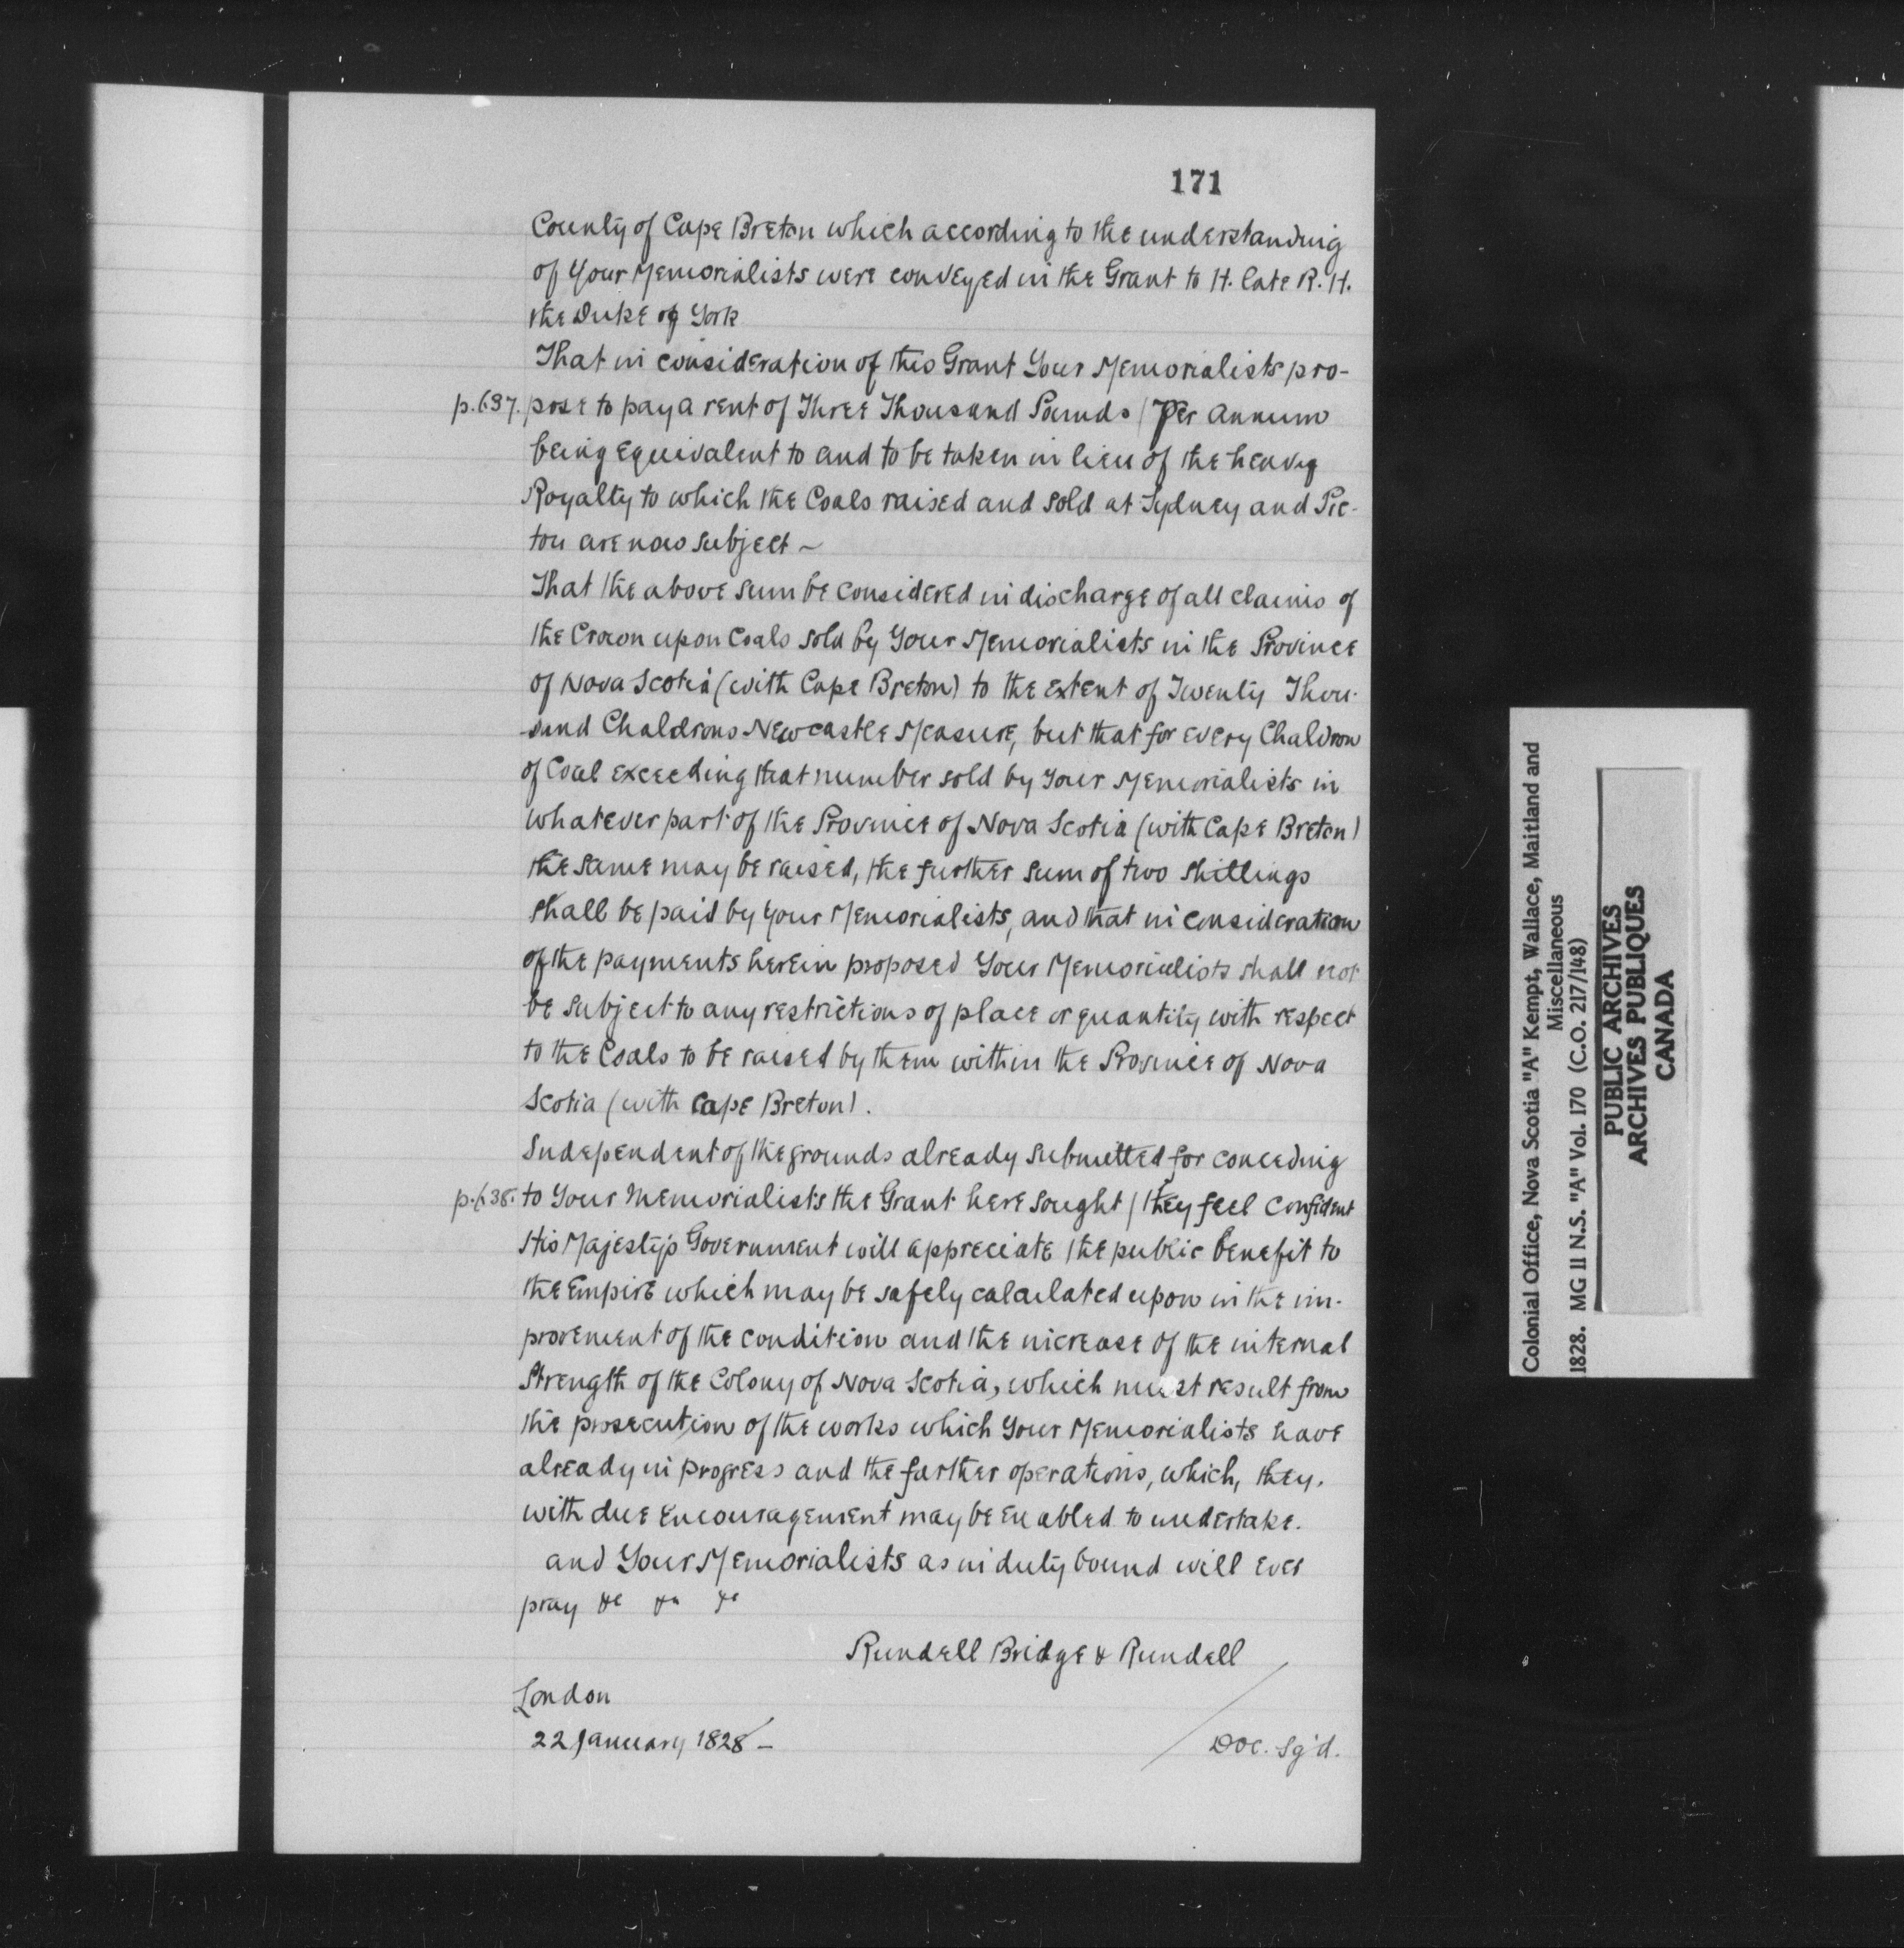 171
County of Cape Breton which according to the understanding
of Your Memorialists were conveyed in the Grant to H. late R. H.
the Duke of York
That in consideration of this Grant Your Memorialists pro-
p.637. pose to pay a rent of Three Thousand Pounds / Per Annum
being equivalent to and to be taken in lieu of the heavy
Royalty to which the Coals raised and sold at Sydney and Pic-
tou are now subject ~
That the above sum be considered in discharge of all claims of
the Crown upon Coals sold by Your Memorialists in the Province
of Nova Scotia (with Cape Breton) to the extent of Twenty Thou-
sand Chaldrons Newcastle Measure, but that for every Chaldron
of Coal exceeding that number sold by Your Memorialists in
whatever part of the Province of Nova Scotia (with Cape Breton)
the same may be raised, the further sum of two shillings
shall be paid by Your Memorialists, and that in consideration
of the payments herein proposed Your Memorialists shall not
be subject to any restrictions of place or quantity with respect
to the Coals to be raised by them within the Province of Nova
Scotia (with Cape Breton).
Independent of the grounds already submitted for conceding
p.638. to Your Memorialists the Grant here sought / they feel confident
His Majesty's Government will appreciate the public benefit to
the Empire which may be safely calculated upon in the im-
provement of the condition and the increase of the internal
Strength of the Colony of Nova Scotia, which must result from
the prosecution of the works which Your Memorialists have
already in progress and the farther operations, which, they,
with due encouragement may be enabled to undertake.
and Your Memorialists as in duty bound will ever
pray &c &c &c
Rundell Bridge & Rundell
London
22 January 1828 —
Doc. Sg'd.
Colonial Office, Nova Scotia "A" Kempt, Wallace, Maitland and
Miscellaneous
1828. MG 11 N.S. "A" Vol. 170 (C.O. 217/148)
PUBLIC ARCHIVES
ARCHIVES PUBLIQUES
CANADA